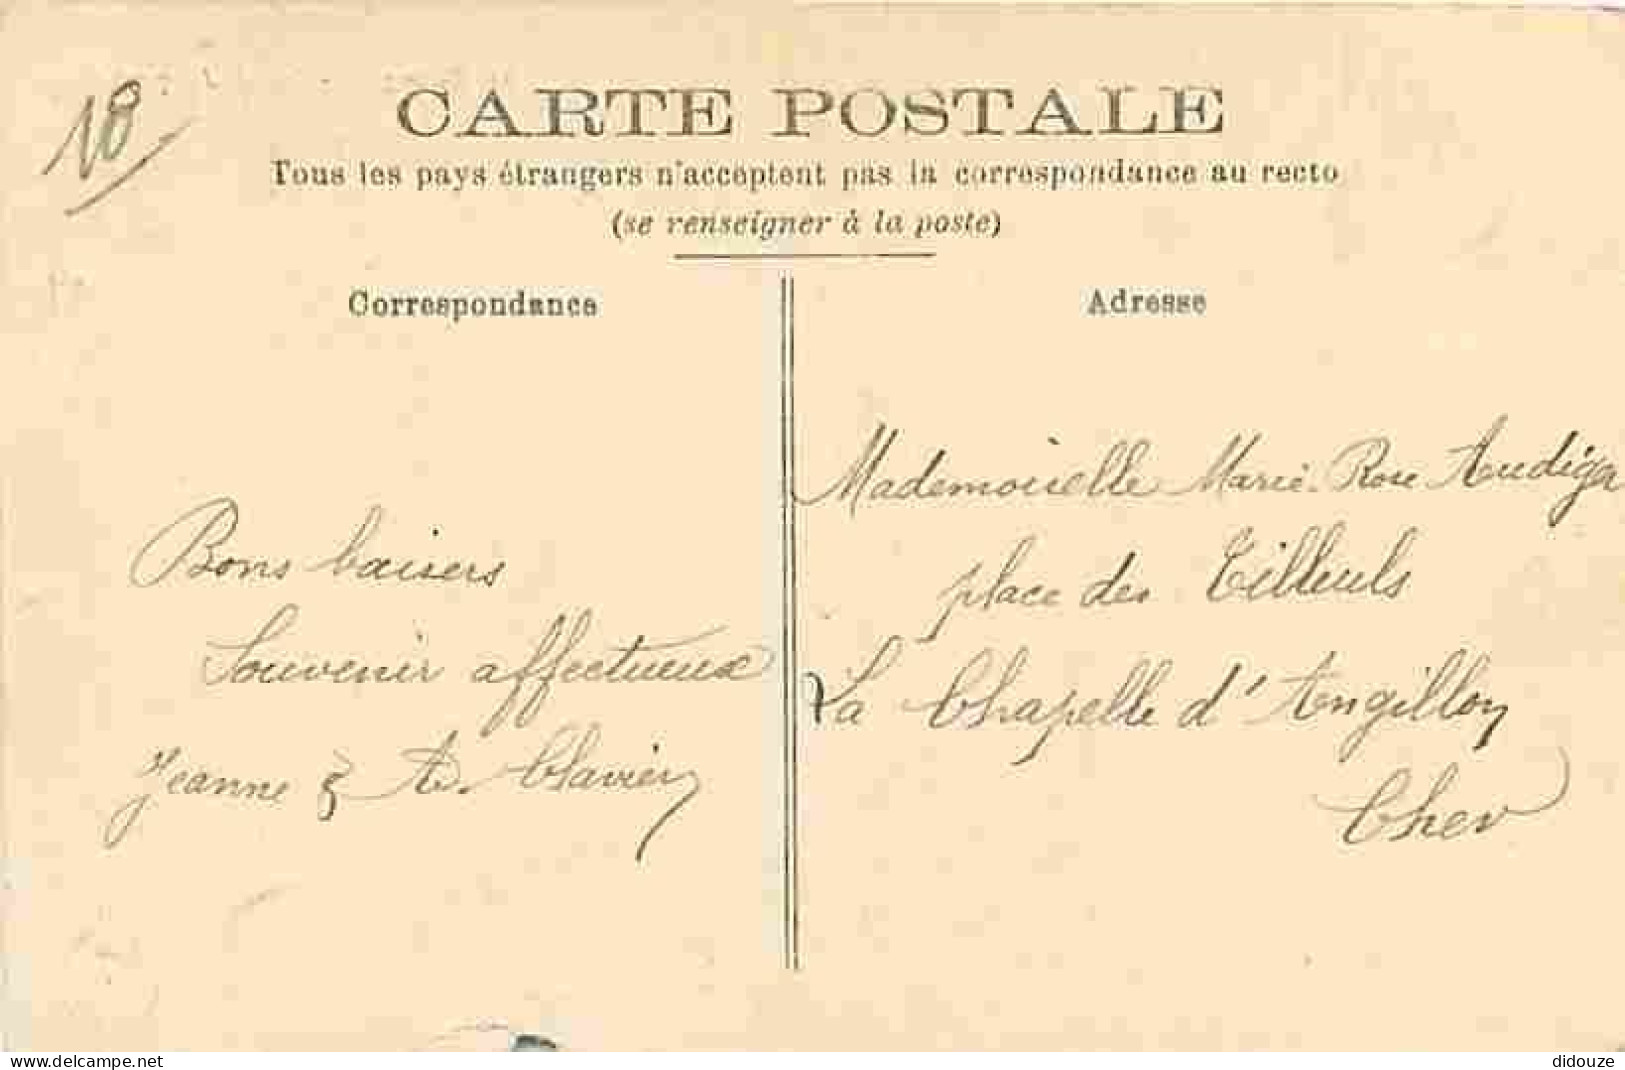 18
CARTE POSTALE
Tous les pays étrangers n'acceptent pas la correspondance au recto
(se renseigner à la poste)
Correspondance
Bons baisers
Souvenir affectueux
Jeanne & A. Clavier
Adresse
Mademoiselle Marie-Rose Audiger
place des Tilleuls
La Chapelle d'Angillon
Cher
www.delcampe.net
didouze